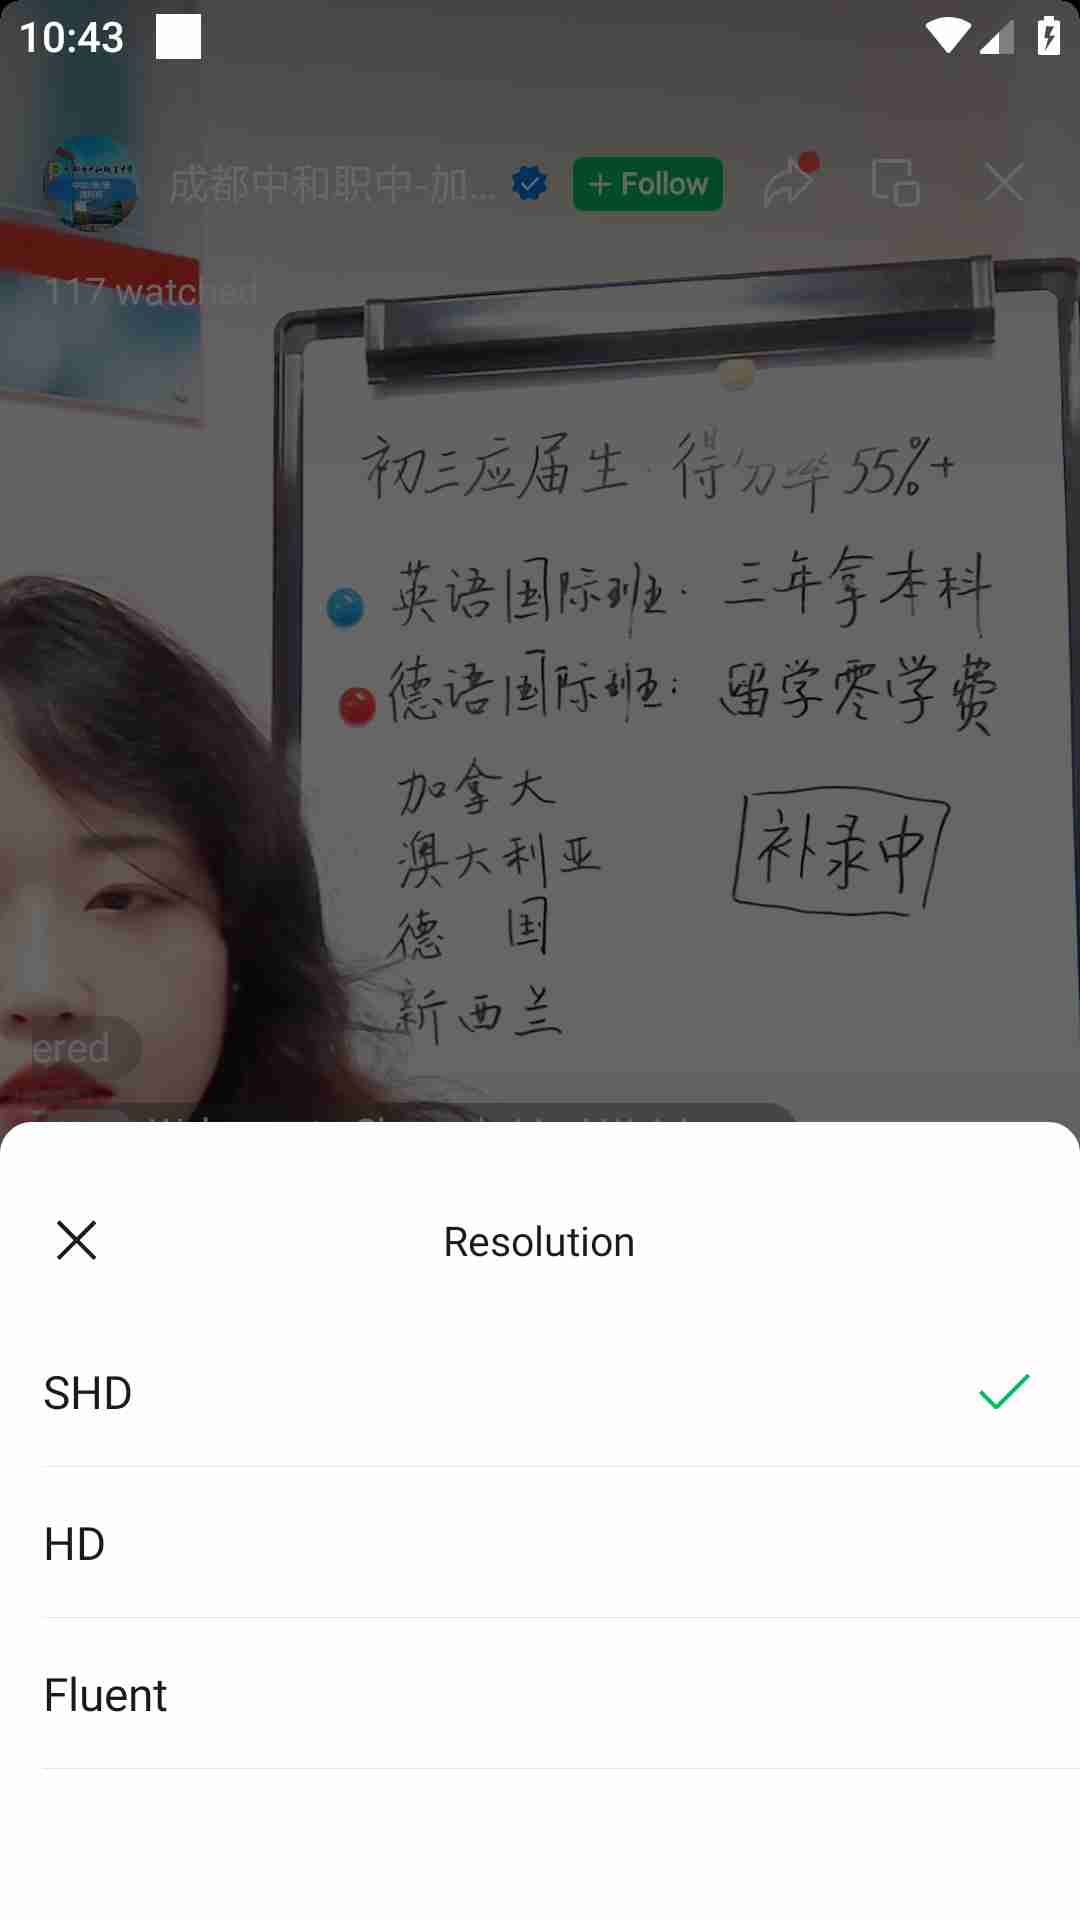 10:43
成都中和职中-加...
+ Follow
117 watched
初三应届生·得分率 55%+
英语国际班· 三年拿本科
德语国际班: 留学零学费
加拿大
澳大利亚
德 国
新西兰
补录中
ered
Resolution
SHD
HD
Fluent